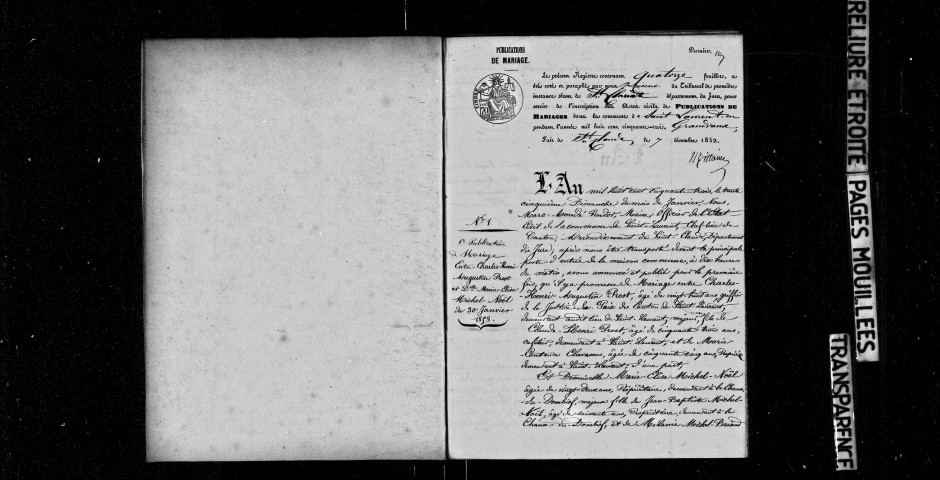 PUBLICATIONS
DE MARIAGE.
Premier.
Le présent Registre contenant quatorze feuillets, a
été coté et paraphé par nous du Tribunal de première
instance séant de St Claude département du Jura, pour
servir de l'inscription des Actes civils de PUBLICATIONS DE
MARIAGES dans la commune de Saint Laurent en
pendant l'année mil huit cent cinquante-trois, Grandvaux,
Fait à St Claude, le 7 décembre 1852.
L'An mil huit cent cinquante trois, le trente
cinquième Dimanche du mois de Janvier, Nous,
Maire, Officier de l'Etat
Civil de la commune de Saint-Laurent, Chef-lieu de
Canton, Arrondissement de Saint-Claude, Département
du Jura; après nous être transporté devant la principale
porte d'entrée de la maison commune, à dix heures
du matin, avons annoncé et publié pour la première
fois, qu'il y a promesse de Mariage entre Charles-
Henri Augustin Prost, âgé de vingt huit ans, greffier
de la Justice de Paix du Canton de Saint Laurent,
demeurant audit lieu de Saint-Laurent, majeur, fils de
Claude-Henri Prost, âgé de cinquante trois ans,
cafetier, demeurant à Saint-Laurent, et de Marie
âgée de cinquante cinq ans,
demeurant à Saint-Laurent; d'une part;
Et Demoiselle Marie Elise Michel-Noël
âgée de vingt-deux ans, Propriétaire, demeurant à la Chaux-
du-Dombief, majeure fille de Jean-Baptiste Michel-
Noël, âgé de soixante ans, Propriétaire, demeurant à la
Chaux-du-Dombief, et de Mélanie Michel
No 1
1re Publication
de Mariage
Entre Charles-Henri
Augustin Prost
et Dlle Marie-Elise
Michel-Noël
du 30 Janvier
1853.
RELIURE ETROITE
PAGES MOUILLEES
TRANSPARENCE